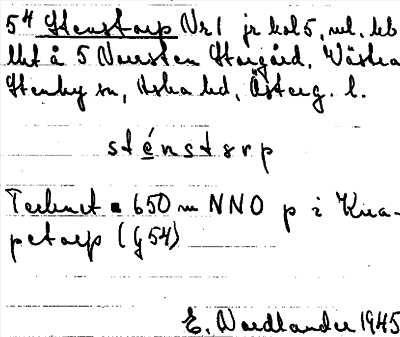 5⁴ Stenstorp Nr 1 jr kol 5, ml. bb
lht å 5 Norsten Storgård, Västra
Stenby sn, Aska hd, Österg. l.
sténstorp
Tecknet ▪ 650 m NNO p i Kna-
petorp (G54)
E. Nordlander 1945